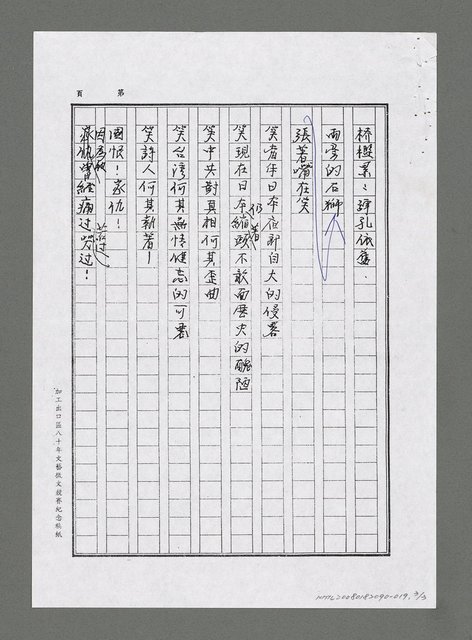 第 頁
橋樑累累彈孔依舊、
兩旁的石獅
張著嘴在笑
笑當年日本在卵自大的侵畧
笑現在日本仍縮著頭不敢面歷史的醜陋
笑中共對真相何其歪曲
笑台灣何其無情健忘的可畏
笑詩人何其執著！
國恨！家仇！
因為被蹂躪過
曾經痛过哭过！
加工出口區八十年文藝徵文競賽紀念稿紙
NMTL20080182090-019, 3/3